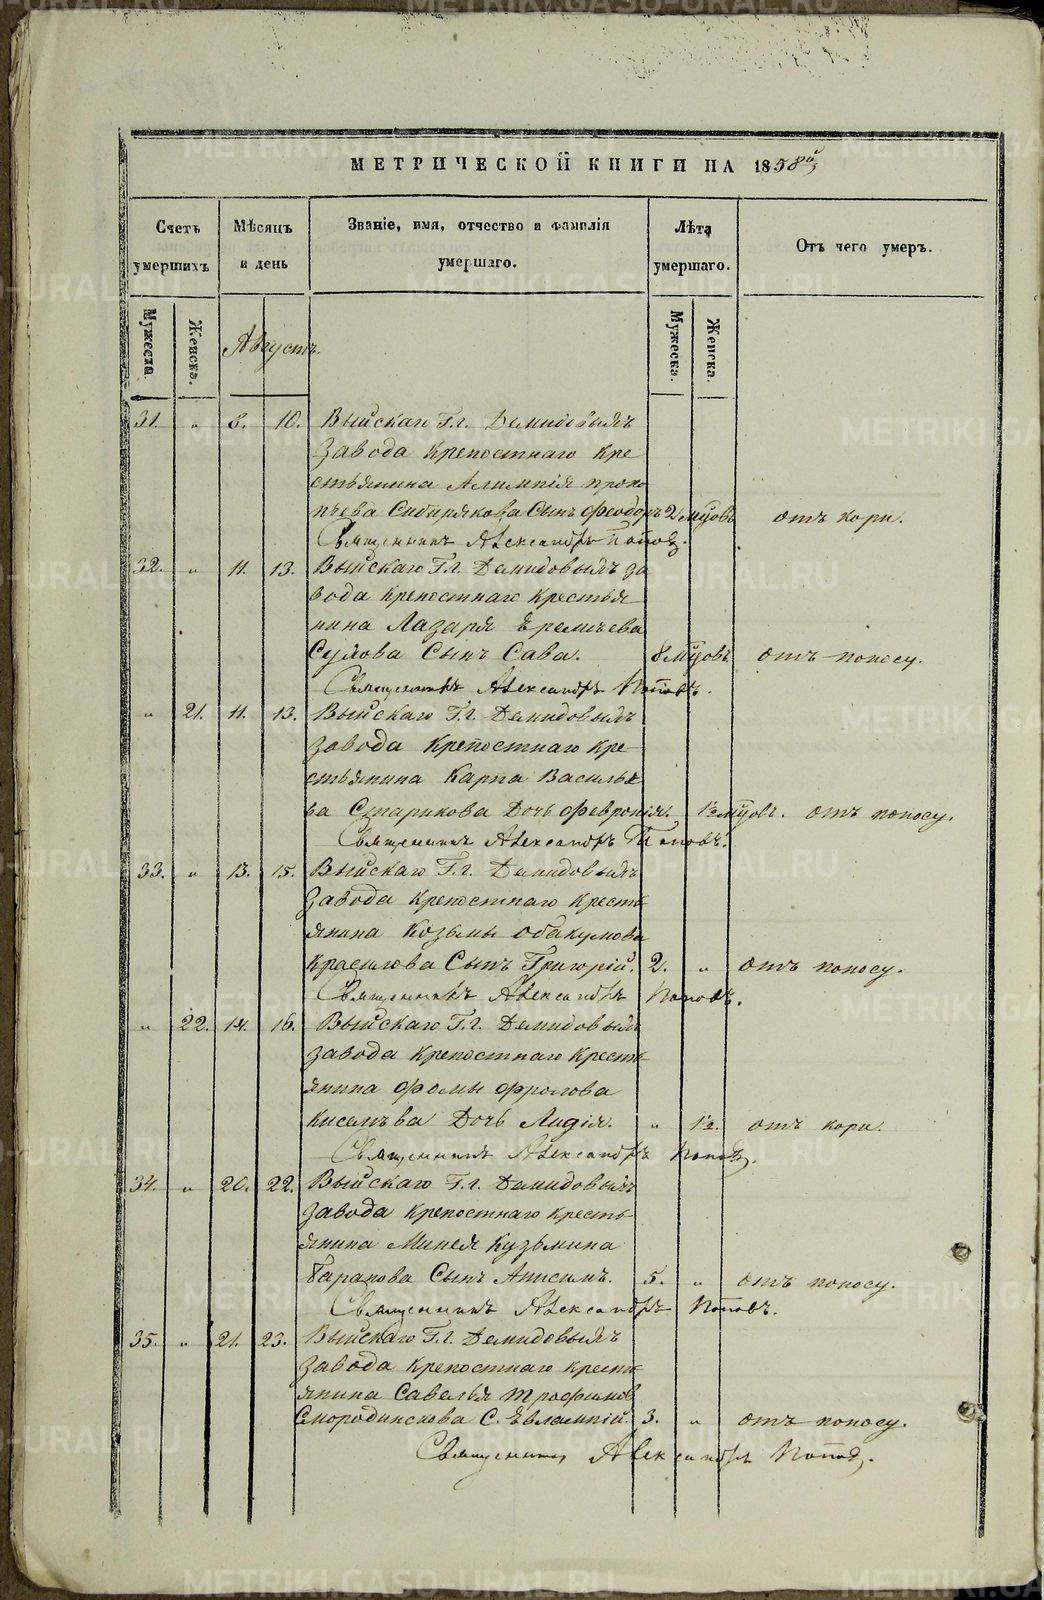 МЕТРИЧЕСКОЙ КНИГИ НА 1858й
Счетъ умершихъ
Мѣсяцъ и день
Званіе, имя, отчество и фамилія умершаго.
Лѣта умершаго.
Отъ чего умеръ.
Мужеска.
Женска.
Августъ.
Мужеска.
Женска.
31. " 8. 10. Выйскаго Г.г. Демидовыхъ
завода крепостнаго кре
стьянина Алимпія проко
пьева Сибирякова Сынъ Феодоръ 2 мцовъ отъ кори.
Священникъ Александръ Поповъ.
32. " 11. 13. Выйскаго Г.г. Демидовыхъ за
вода крепостнаго крестья
нина Лазаря Еремѣева
Сулова Сынъ Сава. 8 мцовъ отъ поносу.
Священникъ Александръ Поповъ.
" 21. 11. 13. Выйскаго Г.г. Демидовыхъ
завода крепостнаго кре
стьянина Карпа Василье
ва Старикова Дочь Февронія. 1/2 мцовъ. отъ поносу.
Священникъ Александръ Поповъ.
33. " 13. 15. Выйскаго Г.г. Демидовыхъ
завода крепостнаго кресть
янина Козьмы Обакумова
Красилова Сынъ Григорій. 2. " отъ поносу.
Священникъ Александръ Поповъ.
" 22. 14. 16. Выйскаго Г.г. Демидовыхъ
завода крепостнаго кресть
янина Фомы Фролова
Киселѣва Дочь Лидія. " 1/2. отъ кори.
Священникъ Александръ Поповъ.
34. " 20. 22. Выйскаго Г.г. Демидовыхъ
завода крепостнаго кресть
янина Минея Кузьмина
Баранова Сынъ Анисимъ. 5. " отъ поносу.
Священникъ Александръ Поповъ.
35. " 21. 23. Выйскаго Г.г. Демидовыхъ
завода крепостнаго кресть
янина Савелья Трофимов
Смородинскова С. Евлампій. 3. " отъ поносу.
Священникъ Александръ Поповъ.
METRIKI.GASO-URAL.RU